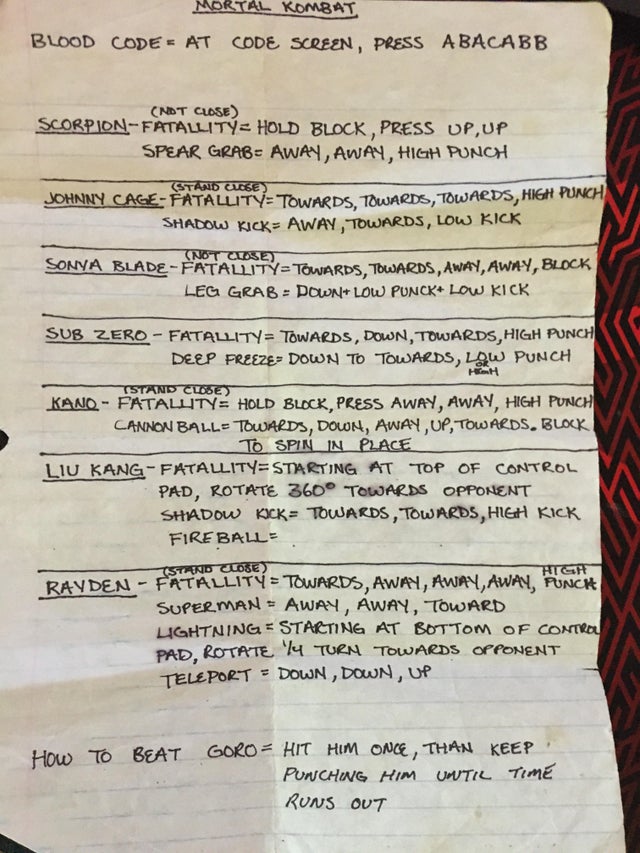 MORTAL KOMBAT
BLOOD CODE = AT CODE SCREEN, PRESS ABACABB
(NOT CLOSE)
SCORPION - FATALLITY = HOLD BLOCK, PRESS UP, UP
SPEAR GRAB = AWAY, AWAY, HIGH PUNCH
(STAND CLOSE)
JOHNNY CAGE - FATALLITY = TOWARDS, TOWARDS, TOWARDS, HIGH PUNCH
SHADOW KICK = AWAY, TOWARDS, LOW KICK
(NOT CLOSE)
SONYA BLADE - FATALLITY = TOWARDS, TOWARDS, AWAY, AWAY, BLOCK
LEG GRAB = DOWN + LOW PUNCK + LOW KICK
SUB ZERO - FATALLITY = TOWARDS, DOWN, TOWARDS, HIGH PUNCH
DEEP FREEZE = DOWN TO TOWARDS, LOW PUNCH
OR
HIGH
(STAND CLOSE)
KANO - FATALLITY = HOLD BLOCK, PRESS AWAY, AWAY, HIGH PUNCH
CANNON BALL = TOWARDS, DOWN, AWAY, UP, TOWARDS. BLOCK
TO SPIN IN PLACE
LIU KANG - FATALLITY = STARTING AT TOP OF CONTROL
PAD, ROTATE 360° TOWARDS OPPONENT
SHADOW KICK = TOWARDS, TOWARDS, HIGH KICK
FIREBALL =
(STAND CLOSE)
RAYDEN - FATALLITY = TOWARDS, AWAY, AWAY, AWAY, HIGH PUNCH
SUPERMAN = AWAY, AWAY, TOWARD
LIGHTNING = STARTING AT BOTTOM OF CONTROL
PAD, ROTATE 1/4 TURN TOWARDS OPPONENT
TELEPORT = DOWN, DOWN, UP
HOW TO BEAT GORO = HIT HIM ONCE, THAN KEEP
PUNCHING HIM UNTIL TIME
RUNS OUT